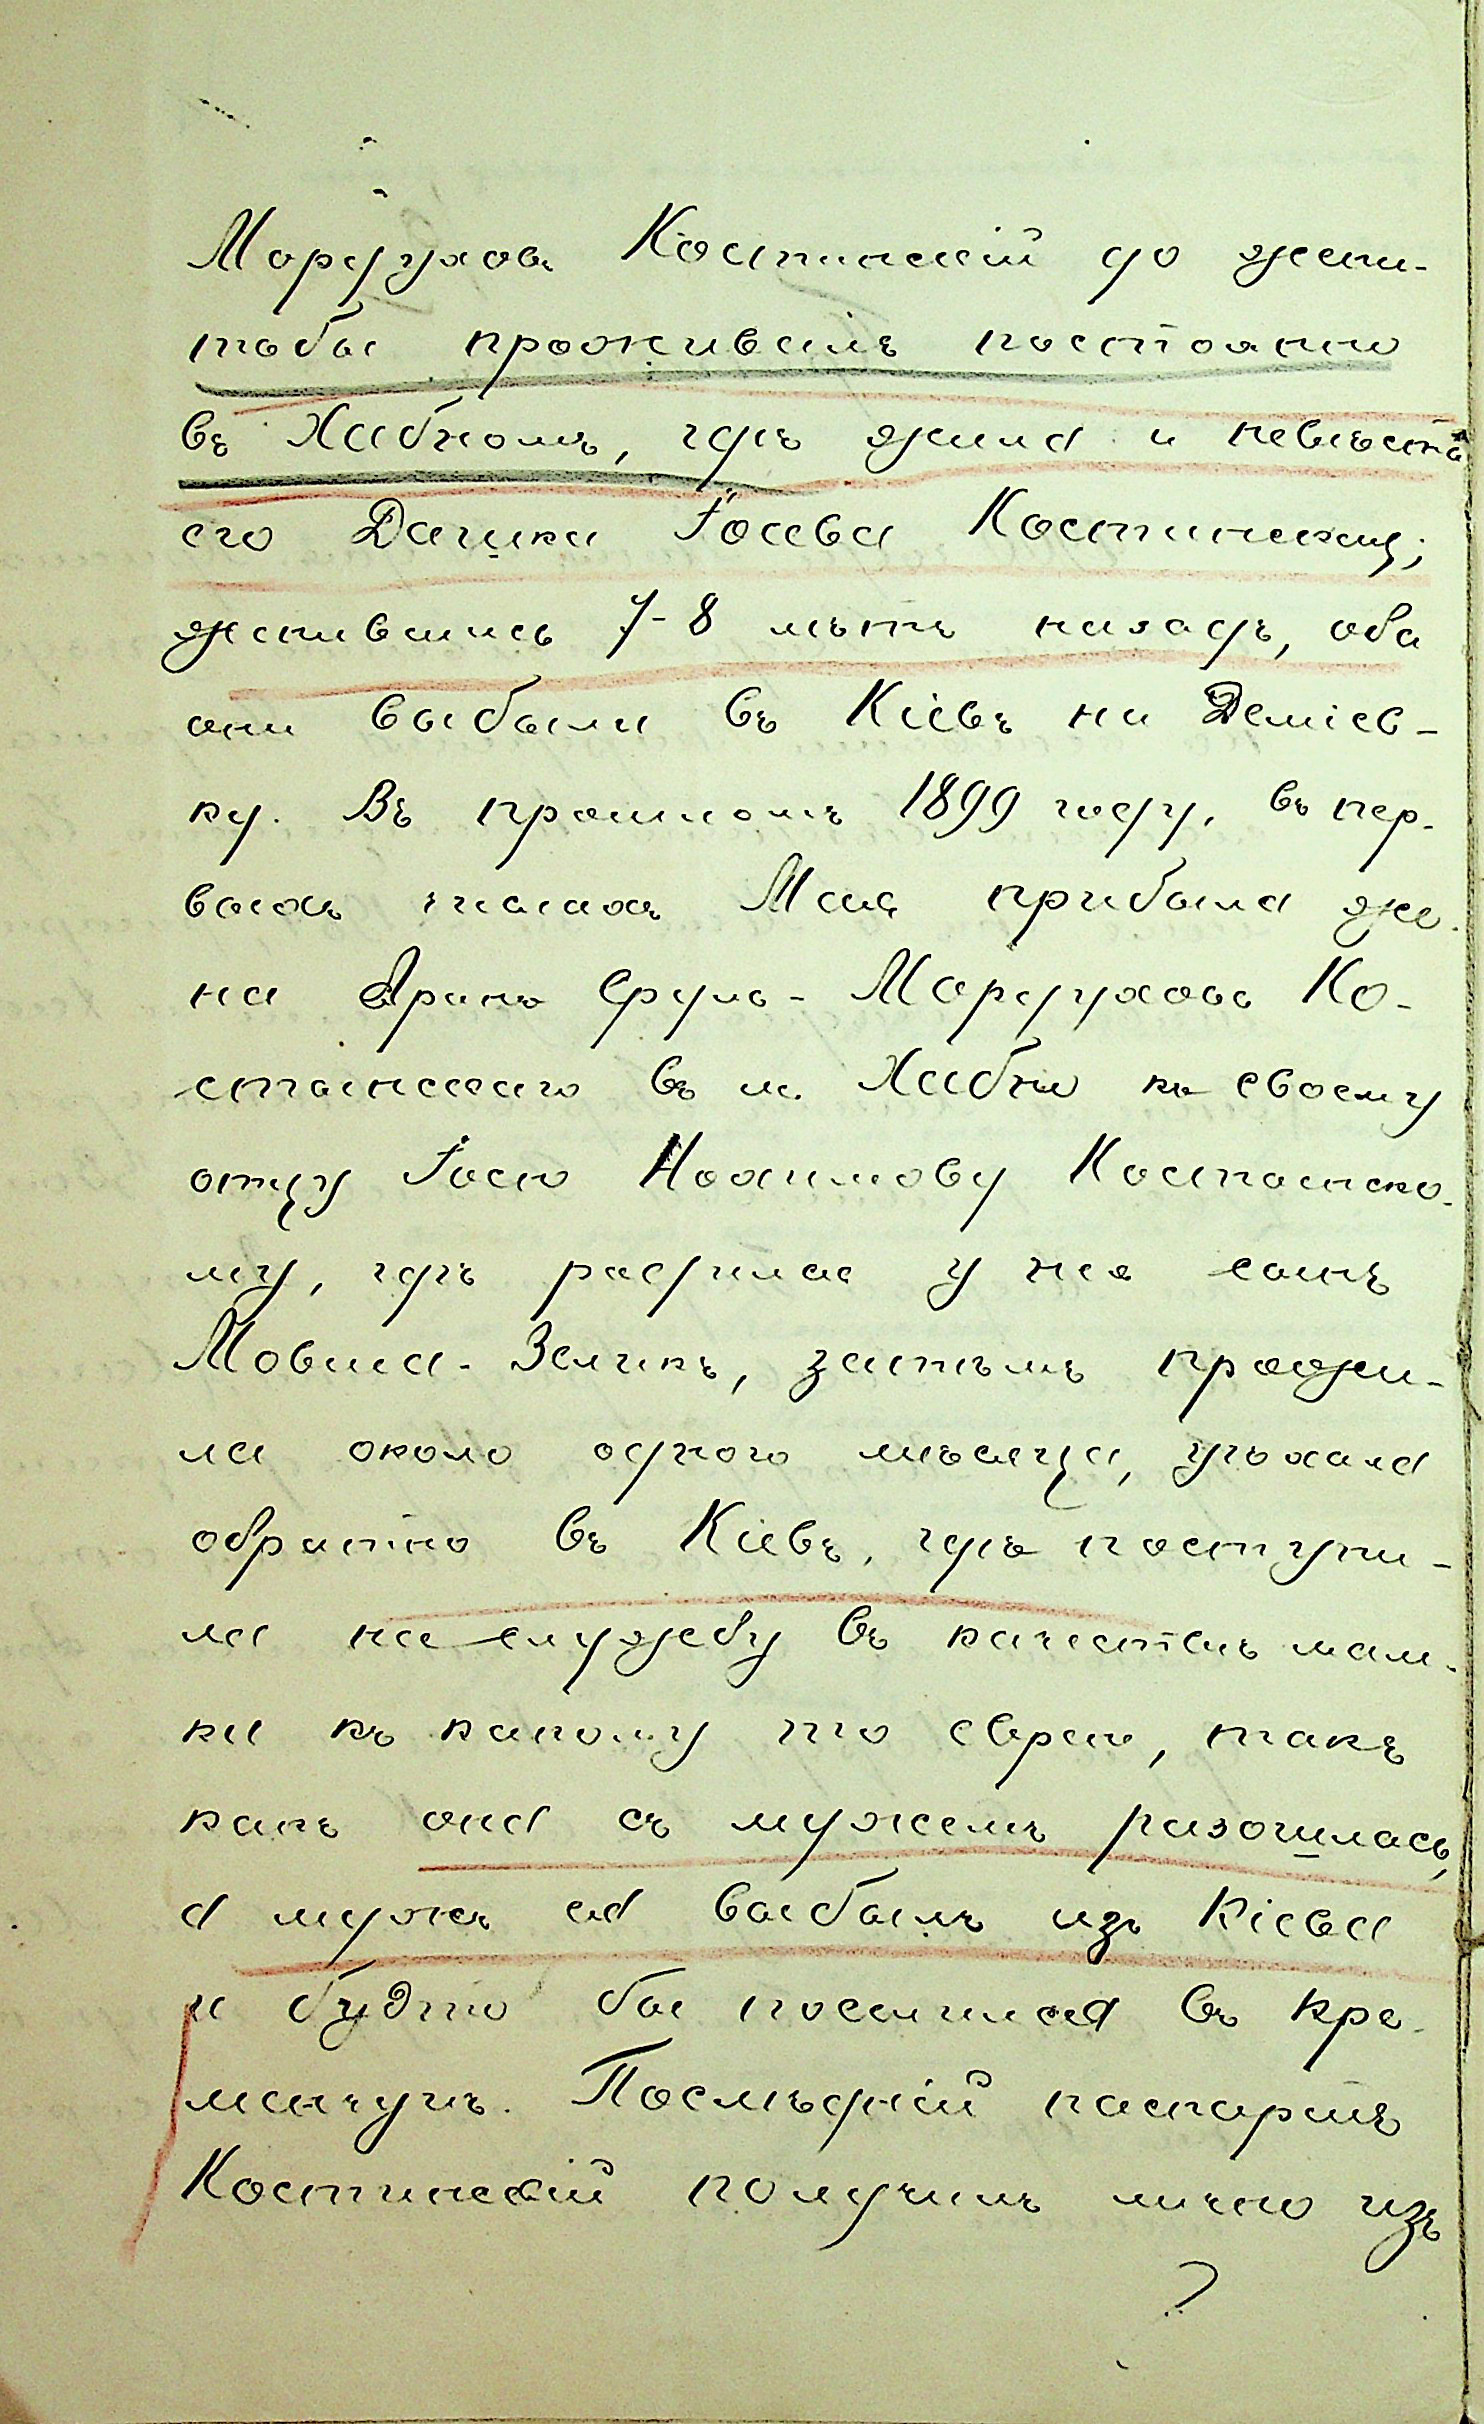 Мордуховъ Костинскій до жени-
тьбы проживалъ постоянно
въ Хабномъ, гдѣ жила и невѣста
его Дашка Іосева Костинская;
женившись 7-8 лѣтъ назадъ, оба
они выбыли въ Кіевъ на Деміев-
ку. Въ прошломъ 1899 году, въ пер-
выхъ числахъ Мая прибыла же-
на Арана Сруль-Мордухова Ко-
стынскаго въ м. Хабно къ своему
отцу Іосю Нохимову Костынско-
му, гдѣ родился у нея сынъ
Мовша-Зеликъ, затѣмъ прожи-
ла около одного мѣсяца, уѣхала
обратно въ Кіевъ, гдѣ поступи-
ла на службу въ качествѣ мам-
ки къ какому то еврею, такъ
какъ она съ мужемъ разошлась,
а мужъ ея выбылъ изъ Кіева
и будто бы поселился въ Кре-
менчугѣ. Послѣдній паспортъ
Костинскій получилъ лично изъ
?